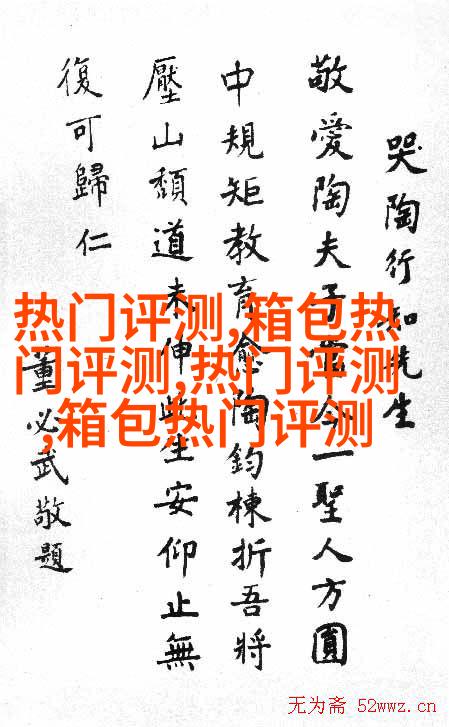 哭陶行知先生
敬愛陶夫子當今一聖人方圓
中規矩教育愈陶鈞棟折吾將
壓山頹道未伸此生安仰止無
復可歸仁
董必武敬題
热门评测,箱包热
门评测,热门评测
,箱包热门评测
无为斋 52wwz.cn